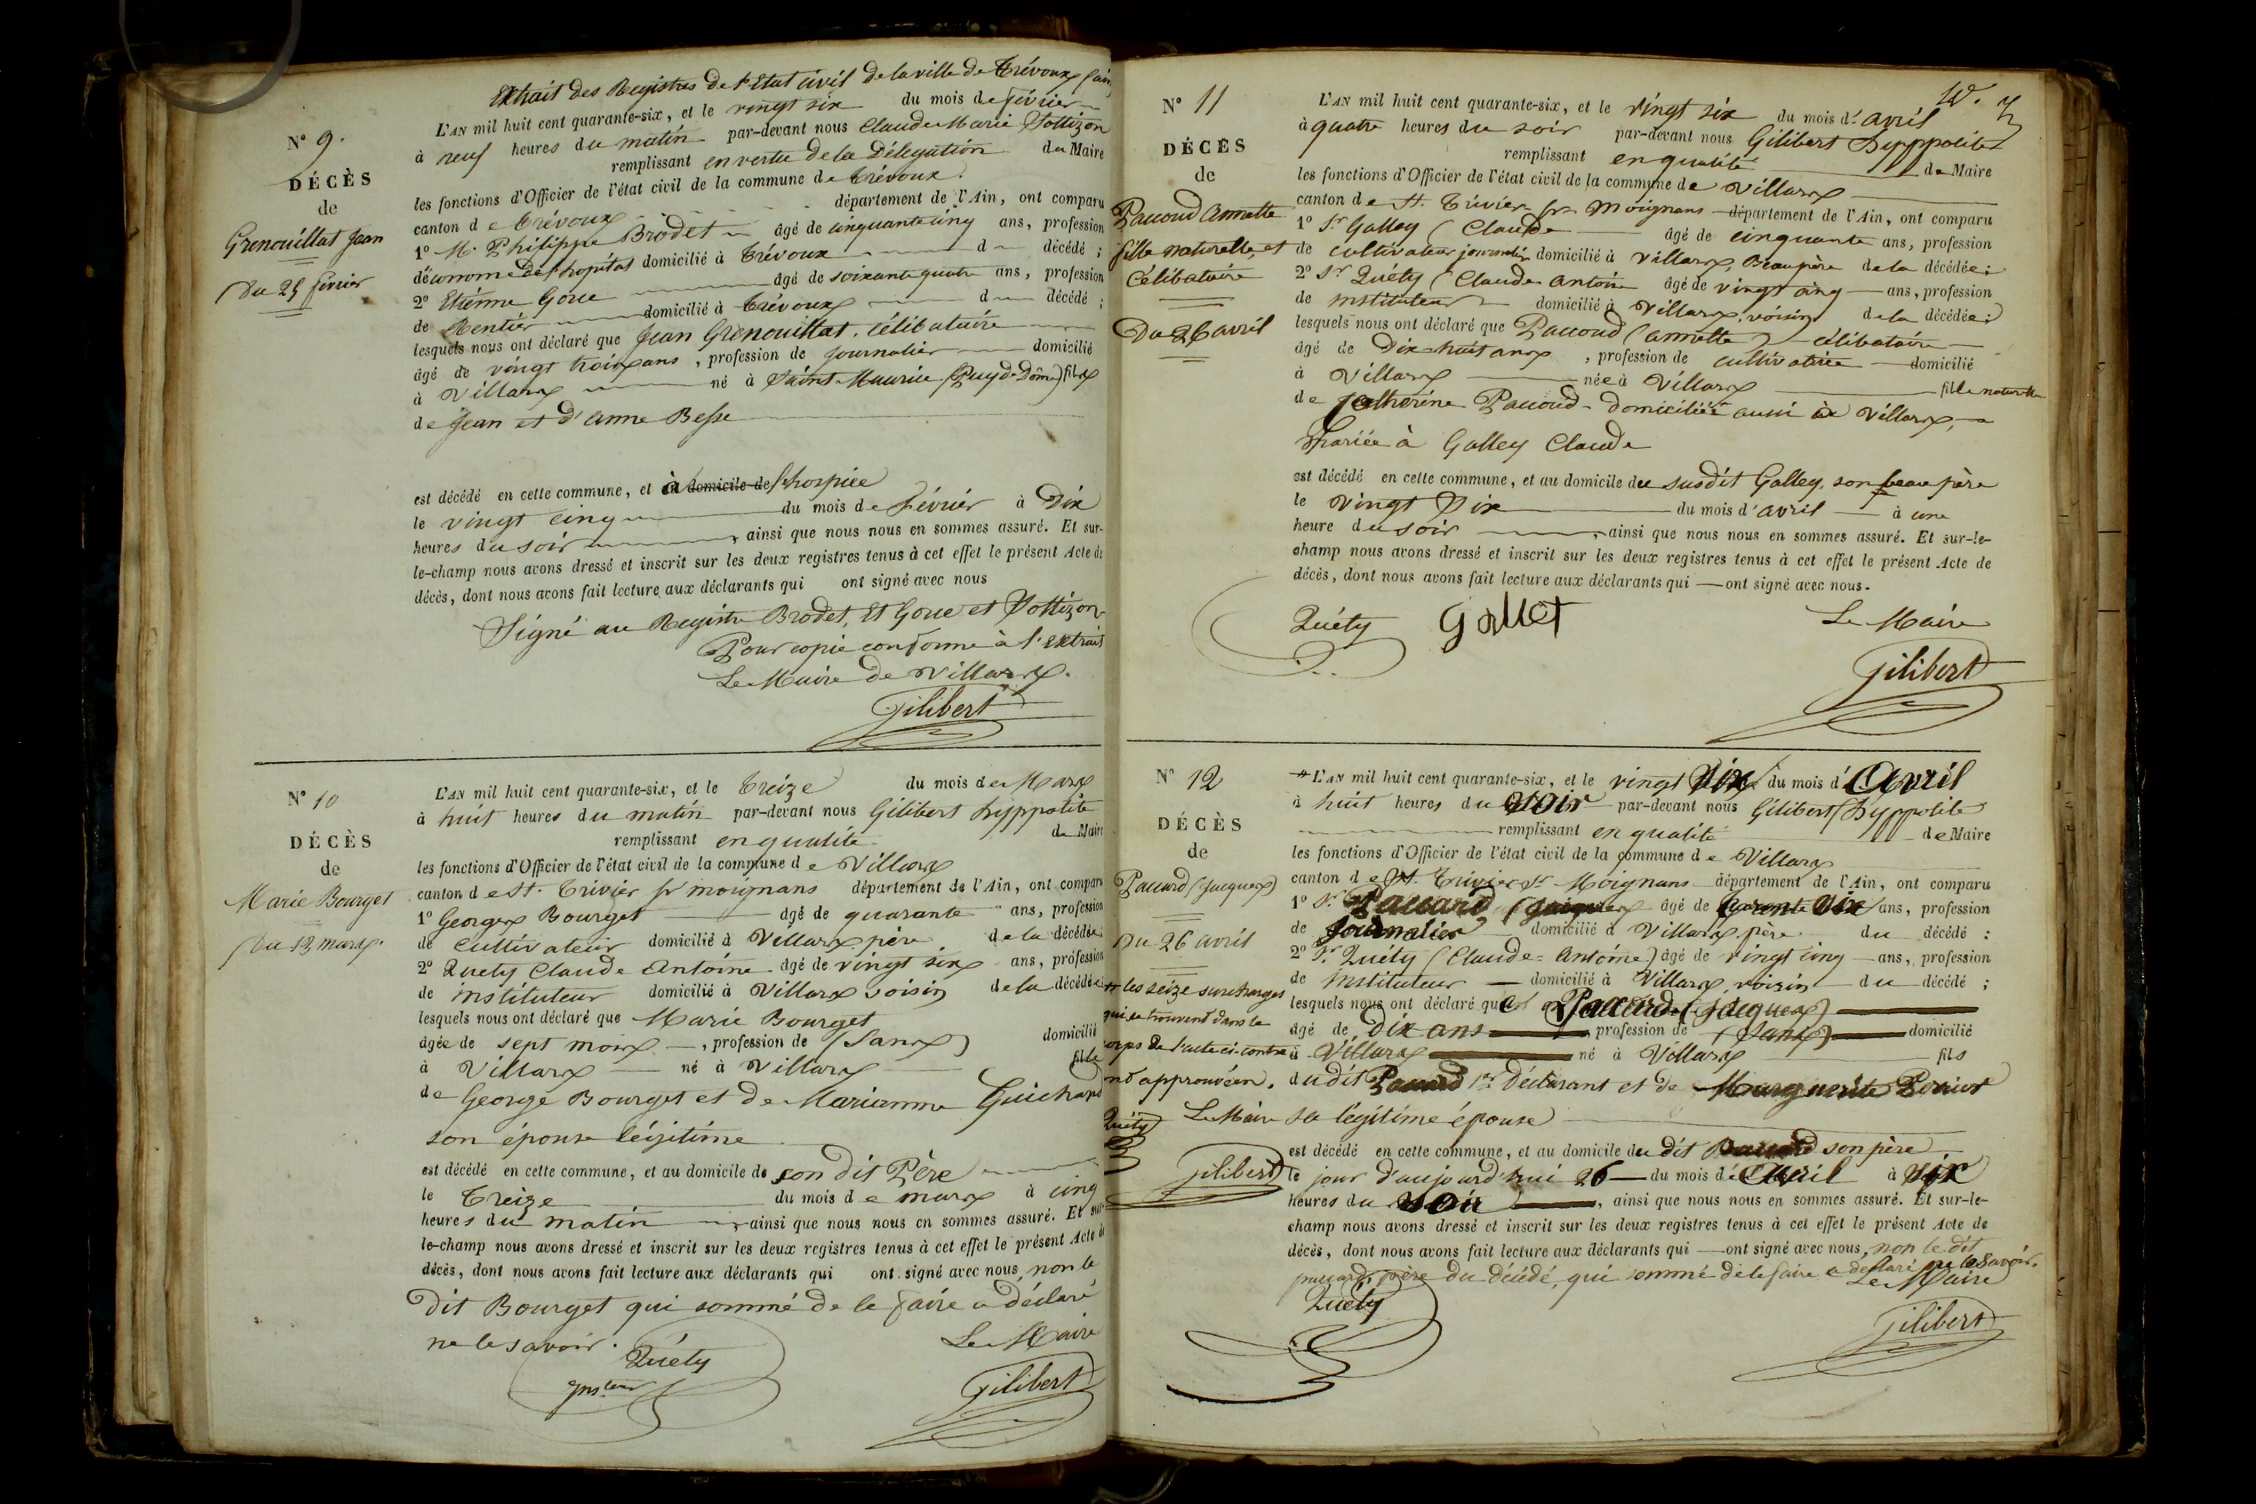 Extrait des Registres de l'Etat civil de la ville de Trévoux (ain)
N° 9.
DÉCÈS
de
Grenouillat Jean
Du 25 février
L'AN mil huit cent quarante-six, et le vingt six du mois de février
à neuf heures du matin par-devant nous Claude Marie
remplissant en vertu de la Délégation du Maire
les fonctions d'Officier de l'état civil de la commune de Trévoux.
canton de Trévoux département de l'Ain, ont comparu
1° M. Philippe Brodet âgé de cinquante cinq ans, profession
d'économe de l'hopital domicilié à Trévoux d décédé ;
2° Etienne Goue âgé de soixante quatre ans, profession
de Rentier domicilié à Trévoux d décédé ;
lesquels nous ont déclaré que Jean Grenouillat, célibataire
âgé de vingt trois ans, profession de journalier domicilié
à Villars né à Saint Maurice (Puy de Dôme) fils
de Jean et d'anne Besse
est décédé en cette commune, et à domicile de l'hospice
le vingt cinq du mois de février à Dix
heures du soir, ainsi que nous nous en sommes assuré. Et sur-
le-champ nous avons dressé et inscrit sur les deux registres tenus à cet effet le présent Acte de
décès, dont nous avons fait lecture aux déclarants qui ont signé avec nous
Signé au Registre Brodet, Et Goue et
Pour copie conforme à l'extrait
Le Maire de Villars.
Gilibert
N° 10
DÉCÈS
de
Marie Bourget
Du 13 mars.
L'AN mil huit cent quarante-six, et le Treize du mois de Mars
à huit heures du matin par-devant nous Gilibert hyppolite
remplissant en qualité de Maire
les fonctions d'Officier de l'état civil de la commune de Villars
canton de St. Trivier sr moignans département de l'Ain, ont comparu
1° Georges Bourget âgé de quarante ans, profession
de cultivateur domicilié à Villars père de la décédée
2° Quety Claude Antoine âgé de vingt six ans, profession
de instituteur domicilié à Villars voisin de la décédée
lesquels nous ont déclaré que Marie Bourget
âgée de sept mois, profession de (Sans) domicilié
à Villars né à Villars fille
de George Bourget et de Marianne Guichard
son épouse légitime
est décédé en cette commune, et au domicile de son dit Père
le Treize du mois de mars à cinq
heures du matin, ainsi que nous nous en sommes assuré. Et sur-
le-champ nous avons dressé et inscrit sur les deux registres tenus à cet effet le présent Acte de
décès, dont nous avons fait lecture aux déclarants qui ont signé avec nous, non le
dit Bourget qui sommé de le faire a déclaré
ne le savoir.
Le Maire
Quéty
Insteur
Gilibert
N° 11
DÉCÈS
de
Paccoud annette
fille naturelle, et
Célibataire
Du 26 avril
L'AN mil huit cent quarante-six, et le vingt six du mois d'avril
à quatre heures du soir par-devant nous Gilibert hypppolite
remplissant en qualité de Maire
les fonctions d'Officier de l'état civil de la commune de Villars
canton de St. Trivier sr Moignans département de l'Ain, ont comparu
1° Sr Galley (Claude âgé de cinquante ans, profession
de cultivateur journalier domicilié à Villars, Beau père de la décédée ;
2° Sr Quéty (Claude antoine âgé de vingt cinq ans, profession
de instituteur domicilié à Villars, voisin de la décédée ;
lesquels nous ont déclaré que Paccoud (annette) célibataire
âgé de Dix huit ans, profession de cultivatrice domicilié
à Villars née à Villars fille naturelle
de Catherine Paccoud domiciliée aussi à Villars,
mariée à Galley Claude
est décédé en cette commune, et au domicile du susdit Galley, son beau père
le vingt Six du mois d'avril à une
heure du soir, ainsi que nous nous en sommes assuré. Et sur-le-
champ nous avons dressé et inscrit sur les deux registres tenus à cet effet le présent Acte de
décès, dont nous avons fait lecture aux déclarants qui ont signé avec nous.
Quéty Gallet Le Maire
Gilibert
N° 12
DÉCÈS
de
Paccard (Jacques)
Du 26 avril
les seize surcharges
qui se trouvent dans le
corps de l'acte ci-contre
sont approuvées.
Quéty Le Maire
Gilibert
L'AN mil huit cent quarante-six, et le vingt Six du mois d'Avril
à huit heures du soir par-devant nous Gilibert (hyppolite
remplissant en qualité de Maire
les fonctions d'Officier de l'état civil de la commune de Villars
canton de St. Trivier sr Moignans département de l'Ain, ont comparu
1° Sr Paccard (Jacques âgé de quarente Six ans, profession
de Journalier domicilié à Villars, père du décédé ;
2° Sr Quéty (Claude Antoine) âgé de vingt cinq ans, profession
de instituteur domicilié à Villars, voisin du décédé ;
lesquels nous ont déclaré que Paccard (Jacques)
âgé de dix ans, profession de (Sans) domicilié
à Villars né à Villars fils
du dit Paccard 1er Déclarant et de Marguerite
sa légitime épouse
est décédé en cette commune, et au domicile du dit Paccard son père
le jour d'aujourd'hui 26 du mois d'Avril à six
heures du soir, ainsi que nous nous en sommes assuré. Et sur-le-
champ nous avons dressé et inscrit sur les deux registres tenus à cet effet le présent Acte de
décès, dont nous avons fait lecture aux déclarants qui ont signé avec nous, non le dit
paccard, père du décédé, qui sommé de le faire a déclaré ne le savoir.
Quéty Le Maire
Gilibert